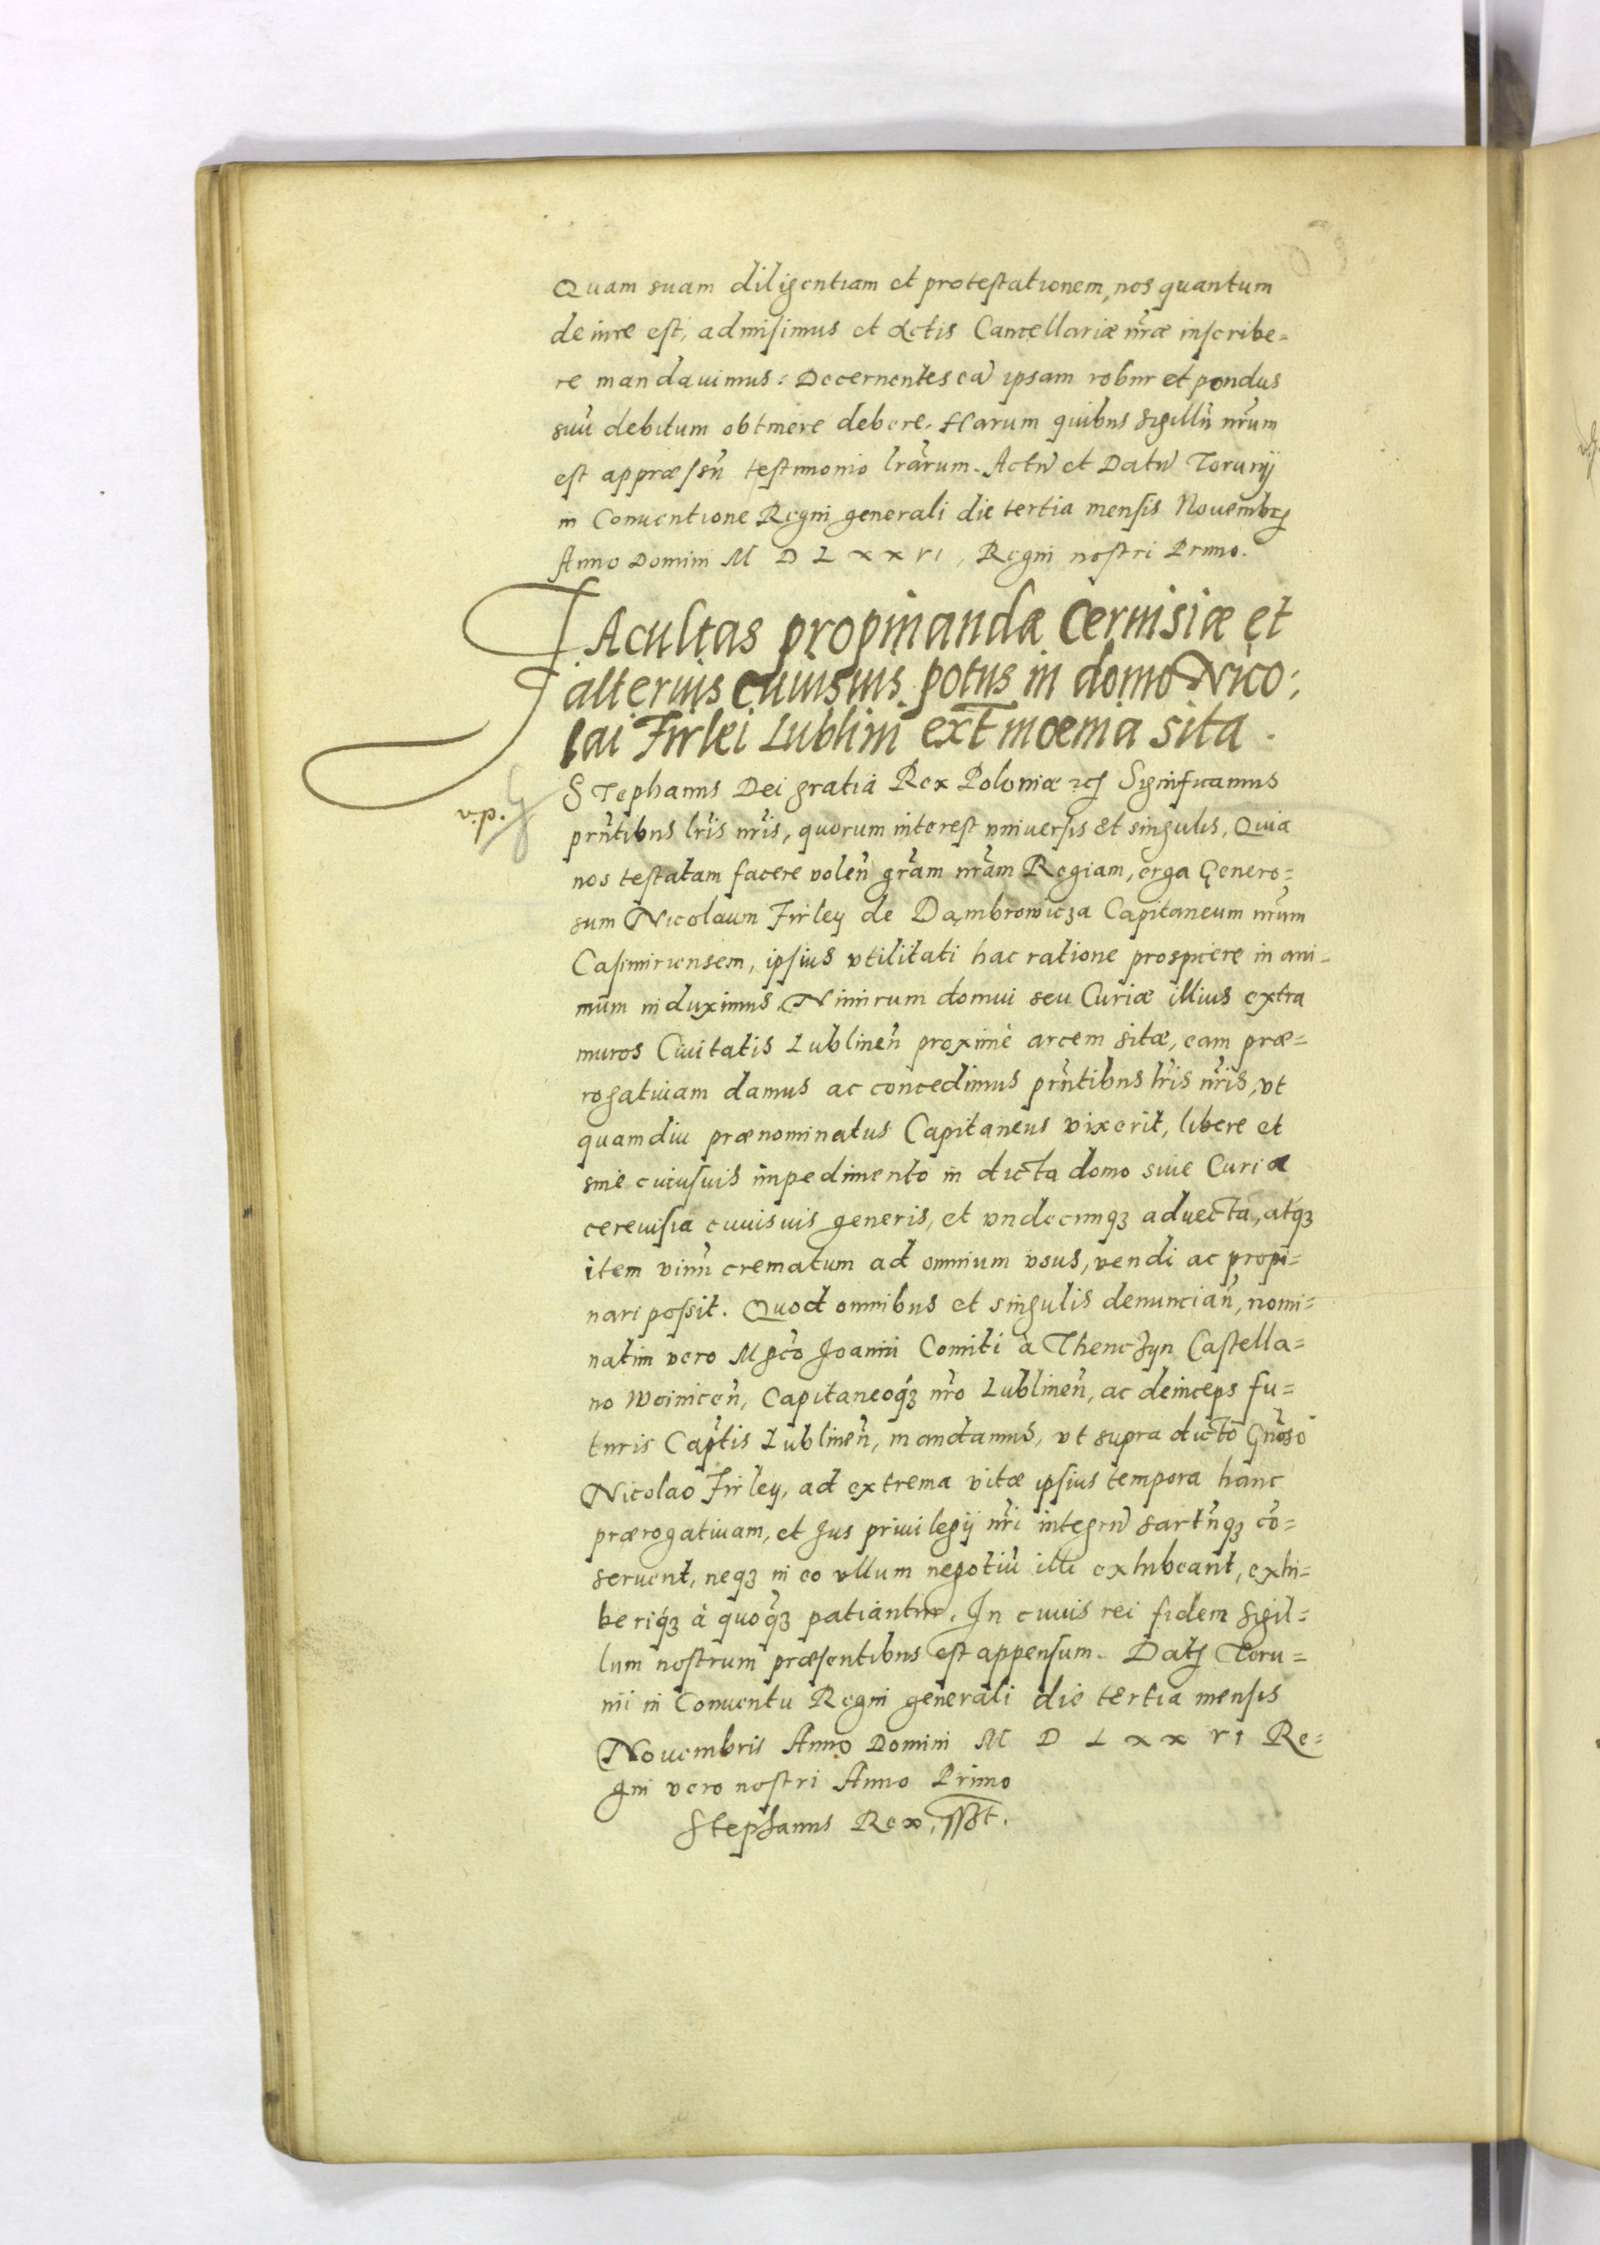 Quam suam diligentiam et protestationem, nos quantum
de iure est, admisimus et Actis Cancellariæ nr̃æ inscribe=
re mandauimus: Decernentes eã ipsam robur et pondus
suũ debitum obtinere debere. Harum quibus sigillũ nr̃um
est appræssũ testimonio lr̃arum. Actũ et Datũ Torunij
in Conuentione Regni generali die tertia mensis Nouembrꝭ
Anno Domini M D L x x vi, Regni nostri Primo.
FAcultas propinandæ Ceruisiæ et
alterius cuiusuis potus in domo Nico:
lai Firlei Lublini ext̃ mœnia sita.
v.p.
STephanus Dei gratia Rex Poloniæ ꝛcꝭ Significamus
pr̃ntibus lr̃is nr̃is, quorum interest vniuersis et singulis, Quia
nos testatam facere volen̄ gr̃am nr̃am Regiam, erga Genero=
sum Nicolaum Firley de Dąmbrowicza Capitaneum nr̃um
Casimiriensem, ipsius vtilitati hac ratione prospicere in ani=
mum induximus, Nimirum domui seu Curiæ illius extra
muros Ciuitatis Lublinen̄ proximè arcem sitæ, eam præ=
rogatiuam damus ac concedimus pr̃ntibus lr̃is nr̃is, vt
quamdiu prænominatus Capitaneus vixerit, libere et
sine cuiusuis impedimento in dicta domo siue Curia
cereuisia cuiusuis generis, et vndecunqꝫ aduecta, atqꝫ
item vinũ crematum ad omnium vsus, vendi ac propi=
nari possit. Quod omnibus et singulis denuncian̄, nomi=
natim vero Mgc̃o Joanni Comiti à Thenczyn Castella=
no Woinicen̄, Capitaneoqꝫ nr̃o Lublinen̄, ac deinceps fu=
turis Cap̃tis Lublinen̄, mandamus, vt supra dicto Gñoso
Nicolao Firley, ad extrema vitæ ipsius tempora hanc
prærogatiuam, et Jus priuilegij nr̃i integrũ sartũqꝫ cõ=
seruent, neqꝫ in eo vllum negotiũ illi exhibeant, exhi=
beriqꝫ à quoqꝫ patiantur. In cuius rei fidem sigil=
lum nostrum præsentibus est appensum. Datꝭ Toru=
nii in Conuentu Regni generali die tertia mensis
Nouembris Anno Domini M D L x x vi Re=
gni vero nostri Anno Primo
Stephanus Rex, sszt.